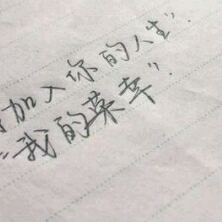 加入你的人生”.
“我的荣幸”.